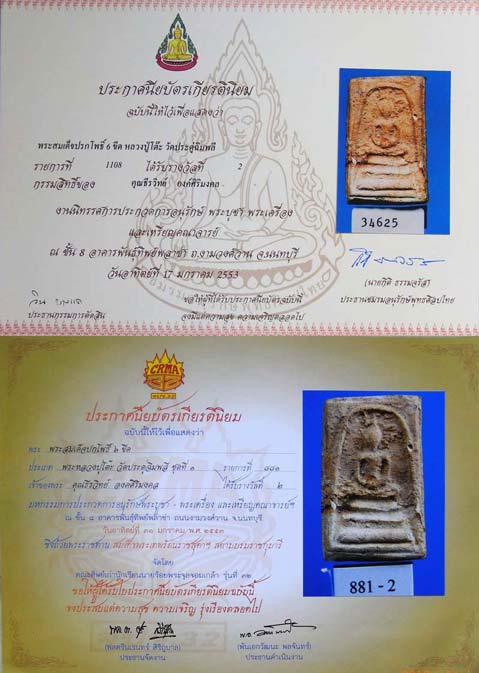 ประกาศนียบัตรเกียรตินิยม
ฉบับนี้ให้ไว้เพื่อแสดงว่า
พระสมเด็จปรกโพธิ์ 6 ขีด หลวงปู่โต๊ะ วัดประดู่ฉิมพลี
รายการที่ 1108 ได้รับรางวัลที่ 2
กรรมสิทธิ์ของ คุณธีรวิทย์ องค์ศิริมงคล
งานนิทรรศการประกวดการอนุรักษ์ พระบูชา พระเครื่อง
และเหรียญคณาจารย์
ณ ชั้น 8 อาคารพันธุ์ทิพย์พลาซ่า ถ.งามวงศ์วาน จ.นนทบุรี
วันอาทิตย์ที่ 17 มกราคม 2553
ขอให้ผู้ที่ได้รับประกาศนียบัตรฉบับนี้
จงมีแต่ความสุข ความเจริญตลอดไป
ประธานกรรมการตัดสิน
34625
(นายกิติ ธรรมจรัส)
ประธานชมรมอนุรักษ์พุทธศิลป์ไทย
CRMA
ประกาศนียบัตรเกียรตินิยม
ฉบับนี้ให้ไว้เพื่อแสดงว่า
พระ พระสมเด็จปกโพธิ์ ๖ ขีด
ประเภท พระหลวงปู่โต๊ะ วัดประดู่ฉิมพลี ชุดที่ ๑ รายการที่ ๘๘๑
เจ้าของพระ คุณธีรวิทย์ องค์ศิริมงคล ได้รับรางวัลที่ ๒
มหกรรมการประกวดการอนุรักษ์พระบูชา - พระเครื่อง และเหรียญคณาจารย์ฯ
ณ ชั้น ๘ อาคารพันธุ์ทิพย์พลาซ่า ถนนงามวงศ์วาน จ.นนทบุรี
วันอาทิตย์ที่ ๓๑ มกราคม พ.ศ. ๒๕๕๓
ชิงถ้วยพระราชทาน สมเด็จพระเทพรัตนราชสุดาฯ สยามบรมราชกุมารี
จัดโดย
คณะศิษย์เก่านักเรียนนายร้อยพระจุลจอมเกล้า รุ่นที่ ๓๒
ขอให้ผู้ได้รับใบประกาศนียบัตรเกียรตินิยมฉบับนี้
จงประสบแต่ความสุข ความเจริญ รุ่งเรืองตลอดไป
ประธานจัดงาน
(พันเอกวัฒนะ พลจันทร์)
ประธานดำเนินงาน
881 - 2